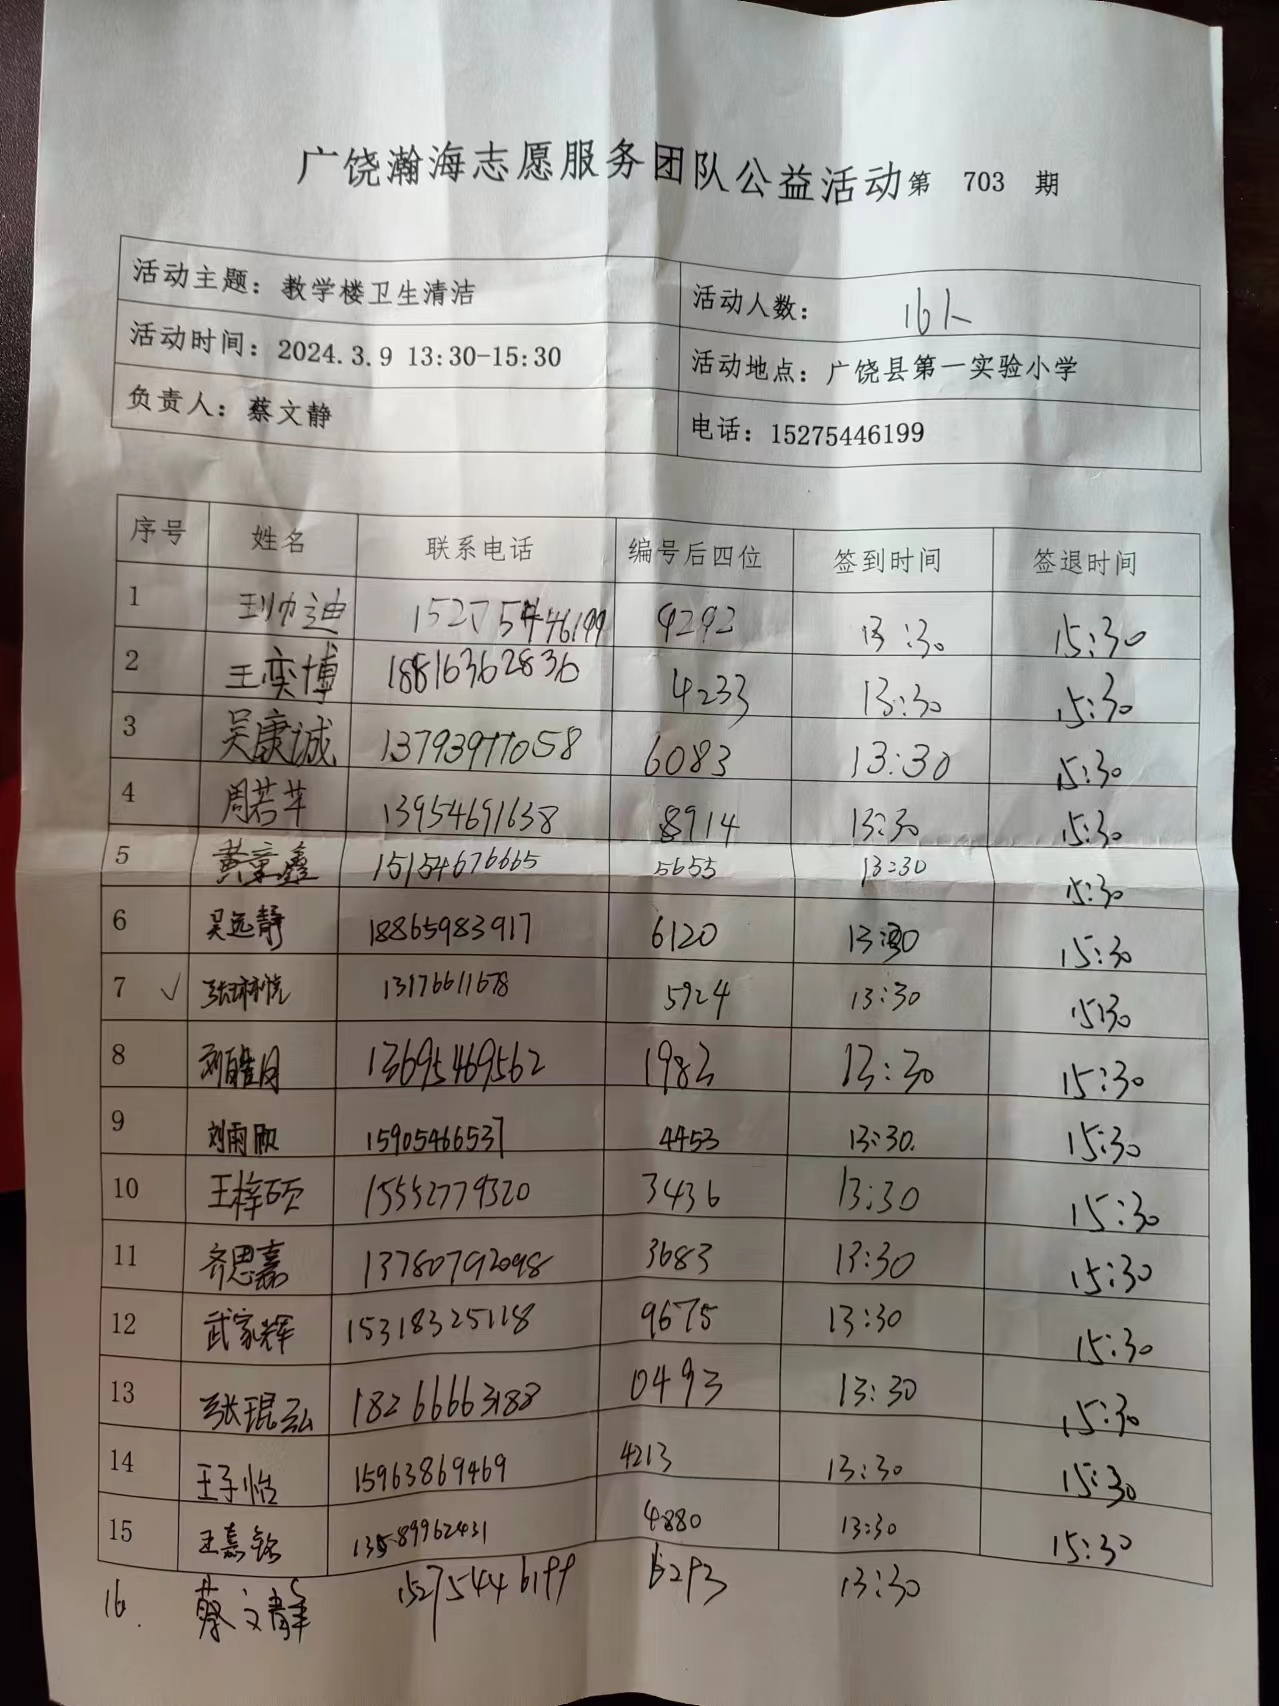 广饶瀚海志愿服务团队公益活动第 703 期
活动主题：教学楼卫生清洁 活动人数： 16人
活动时间：2024.3.9 13:30-15:30 活动地点：广饶县第一实验小学
负责人：蔡文静 电话：15275446199
序号 姓名 联系电话 编号后四位 签到时间 签退时间
1 15275446199 9292 13:30 15:30
2 王奕博 18816362836 4233 13:30 15:30
3 吴康诚 13793977058 6083 13:30 15:30
4 周若苹 13954691638 8914 13:30 15:30
5 黄童鑫 15154676665 5655 13:30 15:30
6 吴远静 18865983917 6120 13:30 15:30
7 ✓ 张琳悦 13176611678 5924 13:30 15:30
8 13695469562 1983 13:30 15:30
9 刘雨欣 15905466537 4453 13:30. 15:30
10 王梓硕 15552779320 3436 13:30 15:30
11 齐思嘉 13780792098 3683 13:30 15:30
12 武家辉 15318325118 9675 13:30 15:30
13 张琨弘 18266663188 0493 13:30 15:30
14 王子怡 15963869469 4213 13:30 15:30
15 王嘉铭 13589962431 4880 13:30 15:30
16. 蔡文静 15275446199 6293 13:30